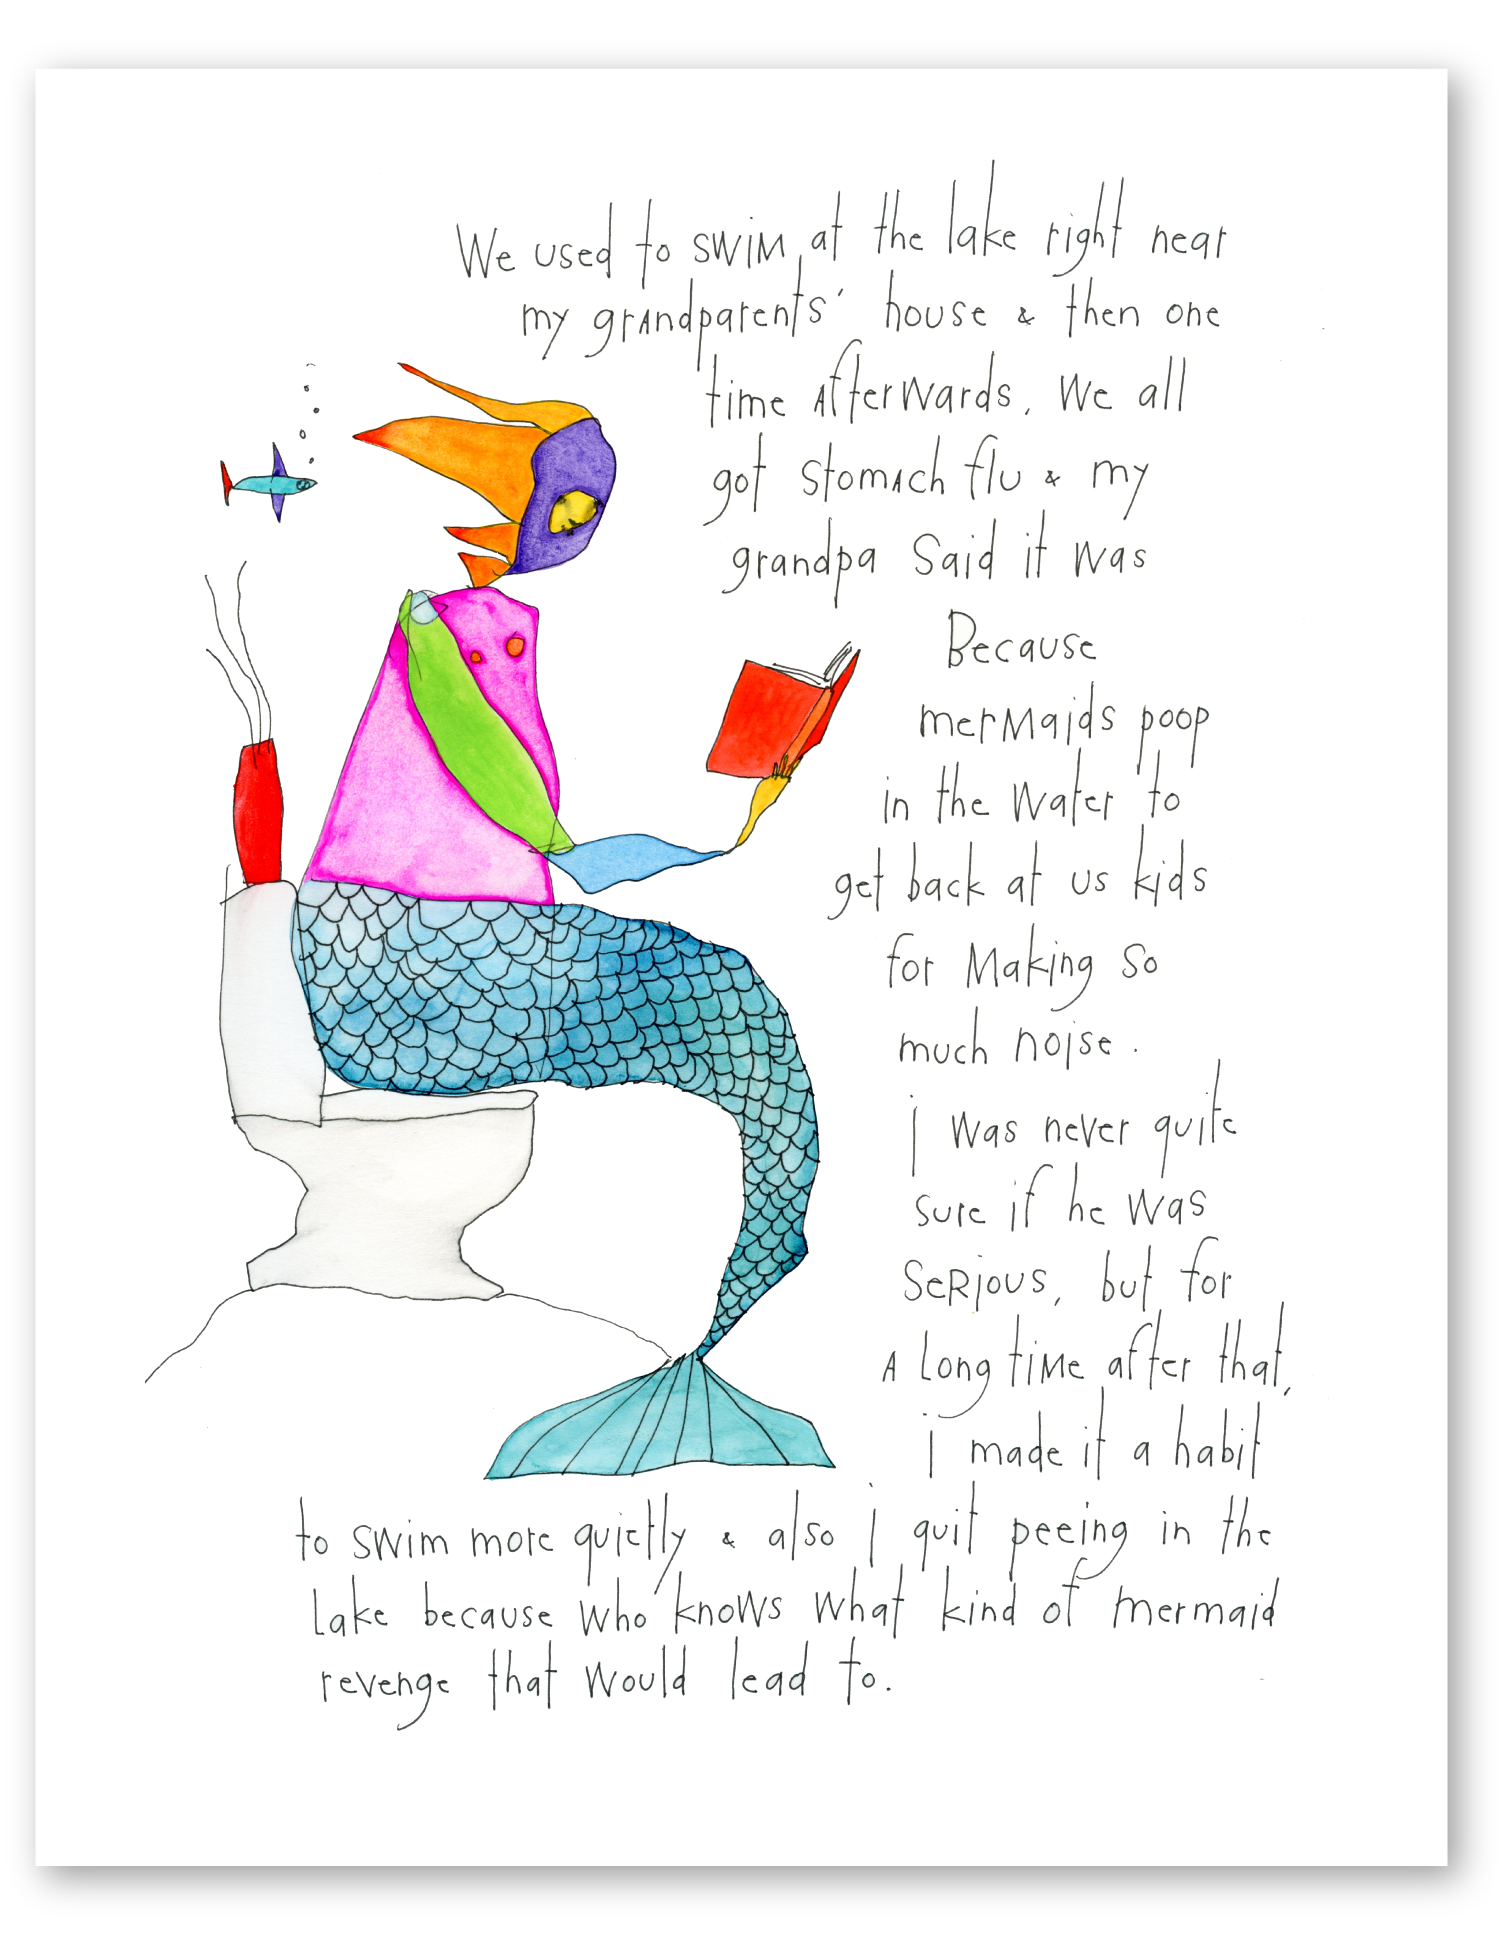 We used to swim at the lake right near
my grandparents' house & then one
time afterwards, we all
got stomach flu & my
grandpa said it was
Because
mermaids poop
in the water to
get back at us kids
for making so
much noise.
i was never quite
sure if he was
serious, but for
a long time after that,
i made it a habit
to swim more quietly & also i quit peeing in the
lake because who knows what kind of mermaid
revenge that would lead to.